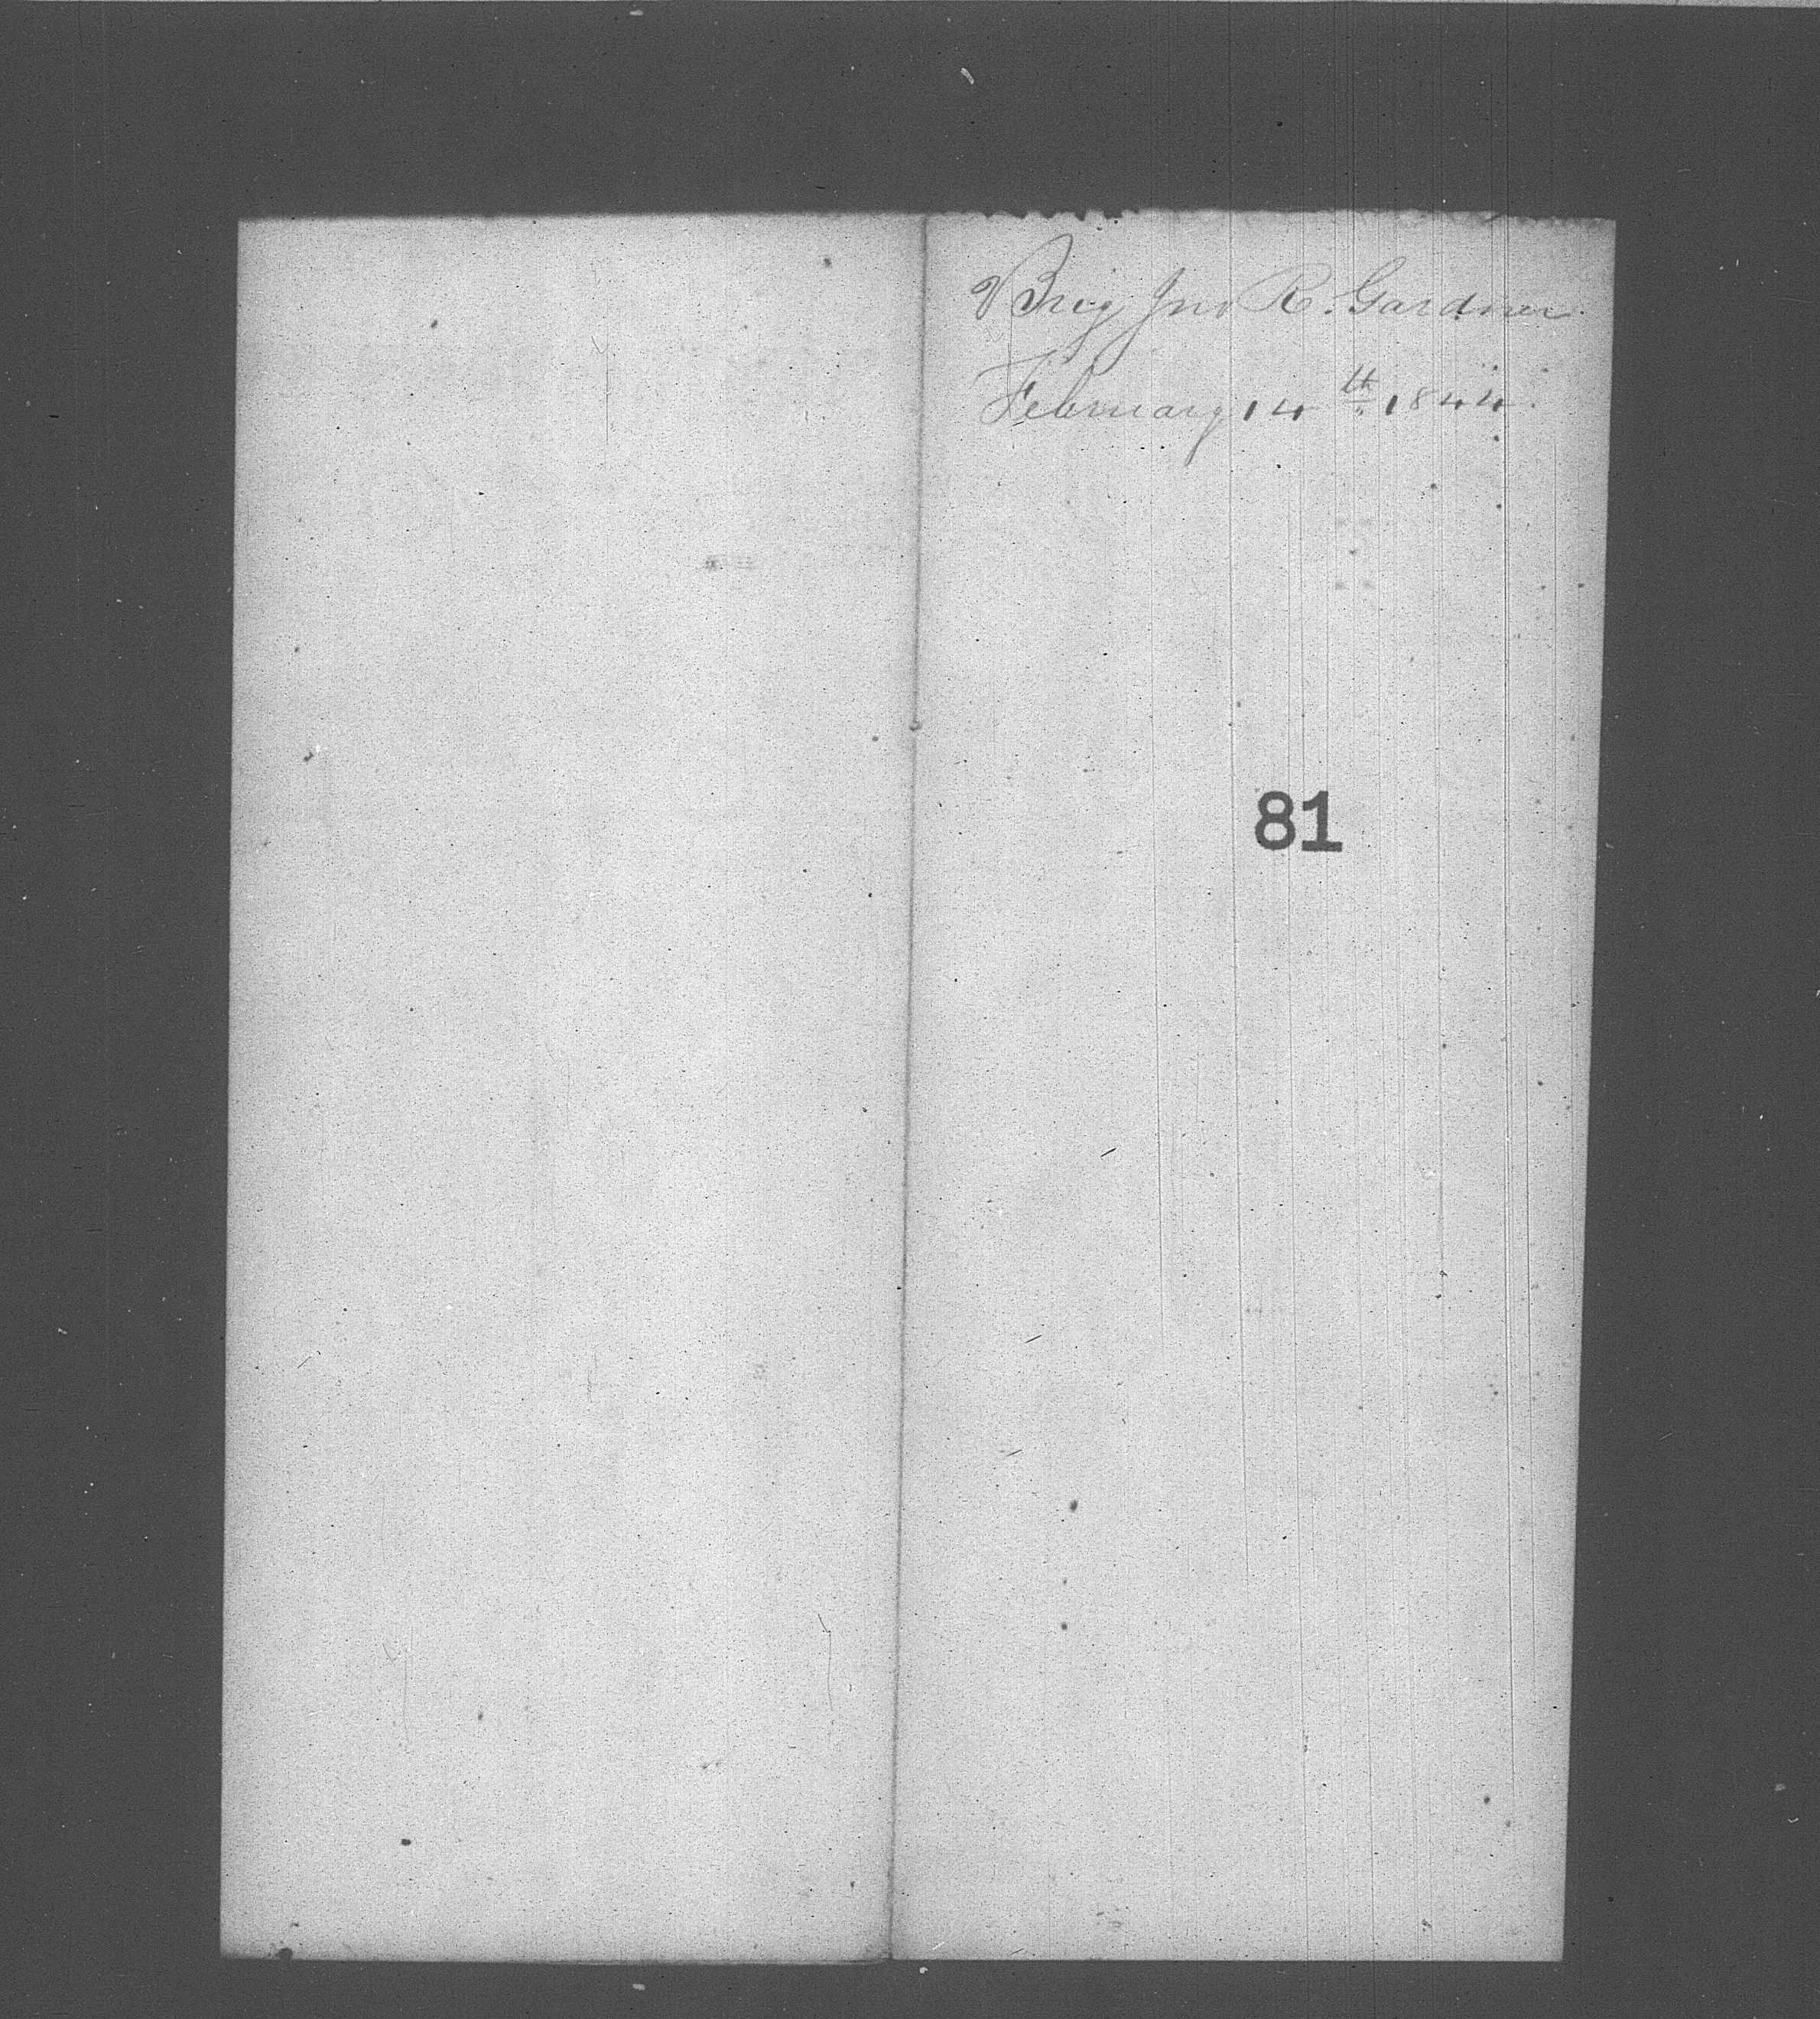 Brig Jno R. Gardner
February 14th 1844.
81